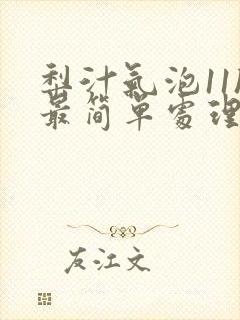 梨汁氣泡11
最简單處理
友江文